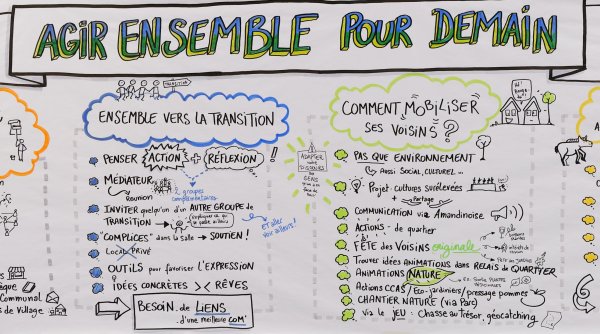 AGIR ENSEMBLE POUR DEMAIN
TRANSITION
ENSEMBLE VERS LA TRANSITION
PENSER ACTION + RÉFLEXION !
2 groupes complémentaires
MÉDIATEUR
Réunion
INVITER quelqu'un d'un AUTRE GROUPE de
TRANSITION
et aller voir ailleurs !
"COMPLICES" dans la Salle → SOUTIEN !
Local Privé
OUTILS pour favoriser L'EXPRESSION
IDÉES CONCRÈTES RÊVES
BESOIN de LIENS
d'une meilleure COM'
ADAPTER
DISCOURS
GENS
COMMENT MOBILISER
SES VOISINS ?
PAS QUE ENVIRONNEMENT
Aussi SOCIAL, CULTUREL...
Projet cultures surélevées
+ Partage
COMMUNICATION via Amandinoise
ACTIONS - de quartier
FÊTE des VOISINS originale
Trouver idées ANIMATIONS dans RELAIS de QUARTIER
ANIMATIONS NATURE
Actions CCAS / Eco-jardiniers / pressage pommes
CHANTIER NATURE (via Parc)
Via le JEU : Chasse au Trésor, géocatching
Communal
de Village